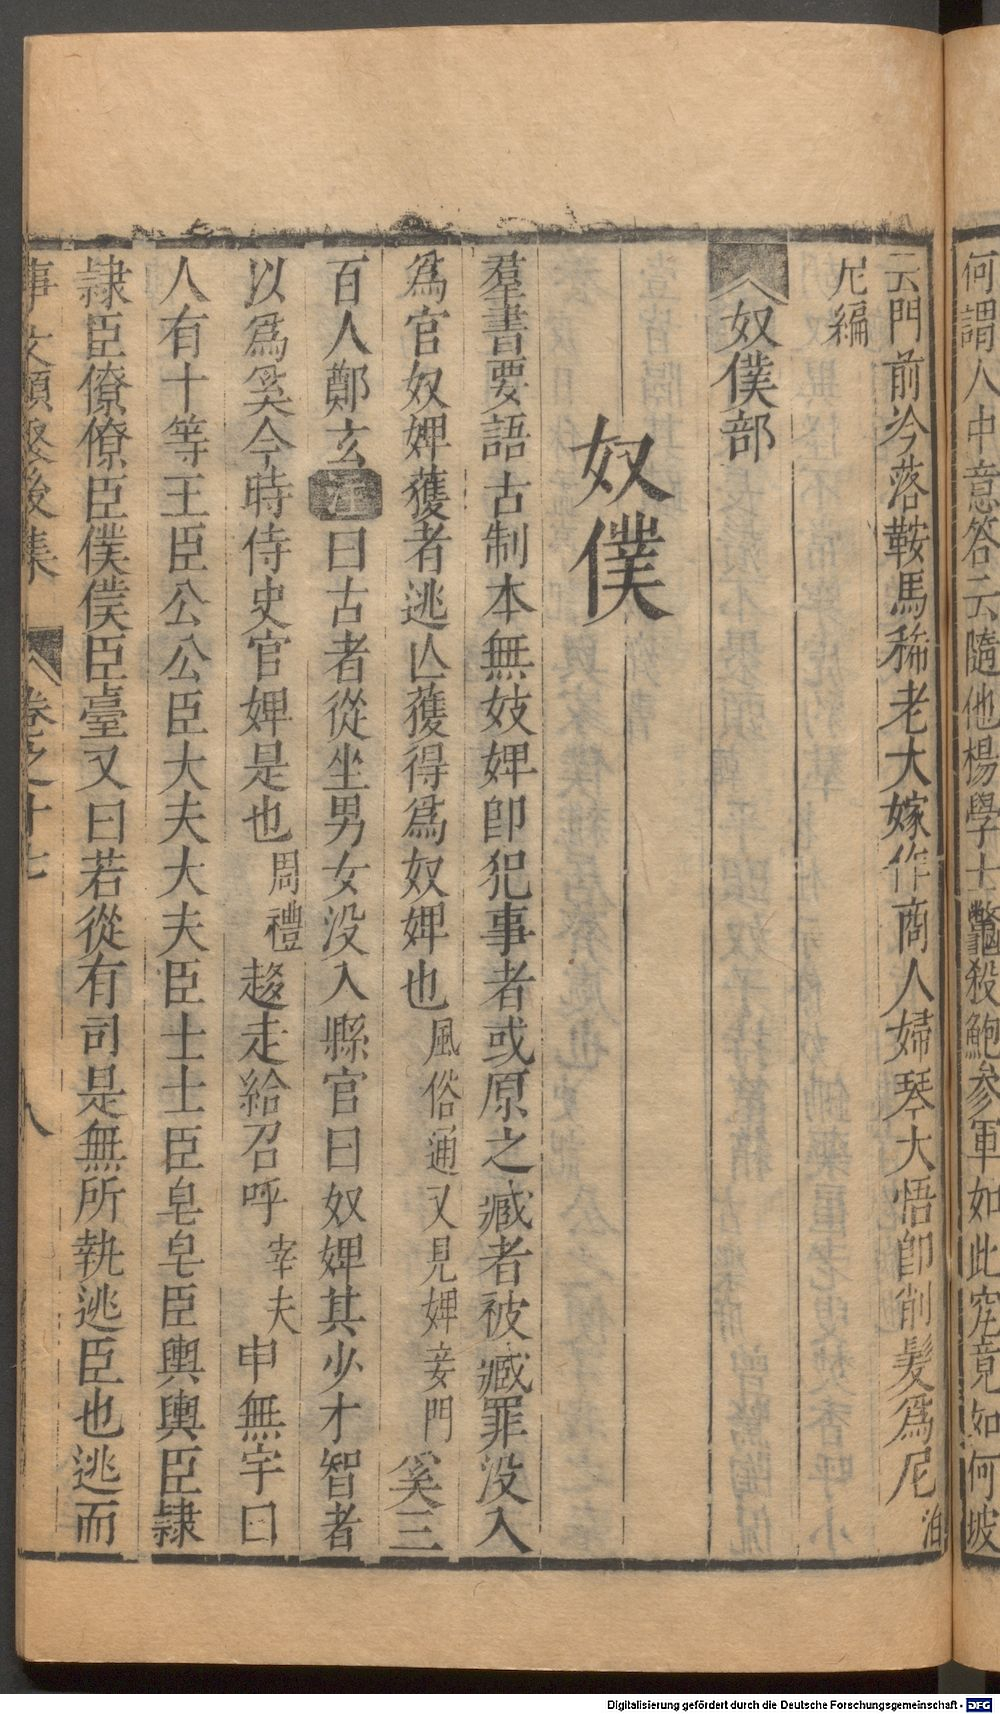 何謂人中意答云隨他楊學士鼈殺鮑參軍如此究竟如何坡
云門前冷落鞍馬稀老大嫁作商人婦琴大悟卽削髮爲尼 泊
尼編
奴僕部
奴僕
羣書要語古制本無妓婢卽犯事者或原之臧者被臧罪没入
爲官奴婢獲者逃亾獲得爲奴婢也 風俗通又見婢妾門 奚三
百人鄭玄注曰古者從坐男女没入縣官曰奴婢其少才智者
以爲奚今時侍史官婢是也 周禮 趍走給召呼 宰夫 申無宇曰
人有十等王臣公公臣大夫大夫臣士士臣皂皂臣輿輿臣隷
隷臣僚僚臣僕僕臣臺又曰若從有司是無所執逃臣也逃而
事文類聚後集 卷之十七 八
Digitalisierung gefördert durch die Deutsche Forschungsgemeinschaft - DFG